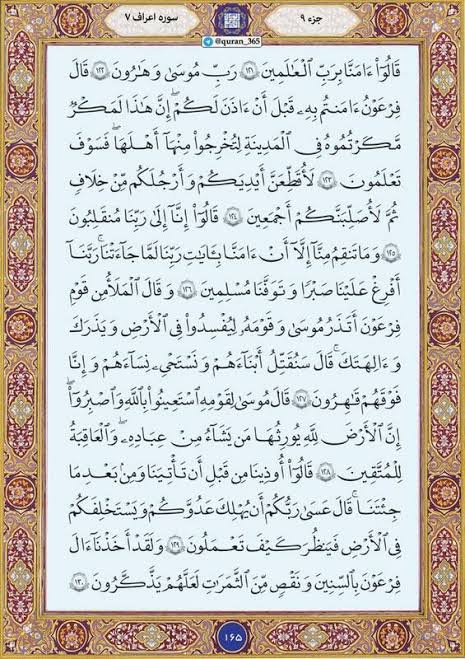 جزء ۹
@quran_365
سوره اعراف ۷
قَالُوٓا۟ ءَامَنَّا بِرَبِّ ٱلْعَـٰلَمِينَ ١٢١ رَبِّ مُوسَىٰ وَ هَـٰرُونَ ١٢٢ قَالَ
فِرْعَوْنُ ءَامَنتُم بِهِۦ قَبْلَ أَنْ ءَاذَنَ لَكُمْ ۖ إِنَّ هَـٰذَا لَمَكْرٌ
مَّكَرْتُمُوهُ فِى ٱلْمَدِينَةِ لِتُخْرِجُوا۟ مِنْهَآ أَهْلَهَا ۖ فَسَوْفَ
تَعْلَمُونَ ١٢٣ لَأُقَطِّعَنَّ أَيْدِيَكُمْ وَ أَرْجُلَكُم مِّنْ خِلَافٍ
ثُمَّ لَأُصَلِّبَنَّكُمْ أَجْمَعِينَ ١٢٤ قَالُوٓا۟ إِنَّآ إِلَىٰ رَبِّنَا مُنقَلِبُونَ
١٢٥ وَ مَا تَنقِمُ مِنَّآ إِلَّآ أَنْ ءَامَنَّا بِـَٔايَاتِ رَبِّنَا لَمَّا جَآءَتْنَا ۚ رَبَّنَآ
أَفْرِغْ عَلَيْنَا صَبْرًا وَ تَوَفَّنَا مُسْلِمِينَ ١٢٦ وَ قَالَ ٱلْمَلَأُ مِن قَوْمِ
فِرْعَوْنَ أَتَذَرُ مُوسَىٰ وَ قَوْمَهُۥ لِيُفْسِدُوا۟ فِى ٱلْأَرْضِ وَ يَذَرَكَ
وَ ءَالِهَتَكَ ۚ قَالَ سَنُقَتِّلُ أَبْنَآءَهُمْ وَ نَسْتَحْىِۦ نِسَآءَهُمْ وَ إِنَّا
فَوْقَهُمْ قَـٰهِرُونَ ١٢٧ قَالَ مُوسَىٰ لِقَوْمِهِ ٱسْتَعِينُوا۟ بِٱللَّهِ وَ ٱصْبِرُوٓا۟ ۖ
إِنَّ ٱلْأَرْضَ لِلَّهِ يُورِثُهَا مَن يَشَآءُ مِنْ عِبَادِهِۦ ۖ وَ ٱلْعَاقِبَةُ
لِلْمُتَّقِينَ ١٢٨ قَالُوٓا۟ أُوذِينَا مِن قَبْلِ أَن تَأْتِيَنَا وَ مِنۢ بَعْدِ مَا
جِئْتَنَا ۚ قَالَ عَسَىٰ رَبُّكُمْ أَن يُهْلِكَ عَدُوَّكُمْ وَ يَسْتَخْلِفَكُمْ
فِى ٱلْأَرْضِ فَيَنظُرَ كَيْفَ تَعْمَلُونَ ١٢٩ وَ لَقَدْ أَخَذْنَآ ءَالَ
فِرْعَوْنَ بِٱلسِّنِينَ وَ نَقْصٍ مِّنَ ٱلثَّمَرَٰتِ لَعَلَّهُمْ يَذَّكَّرُونَ ١٣٠
۱۶۵